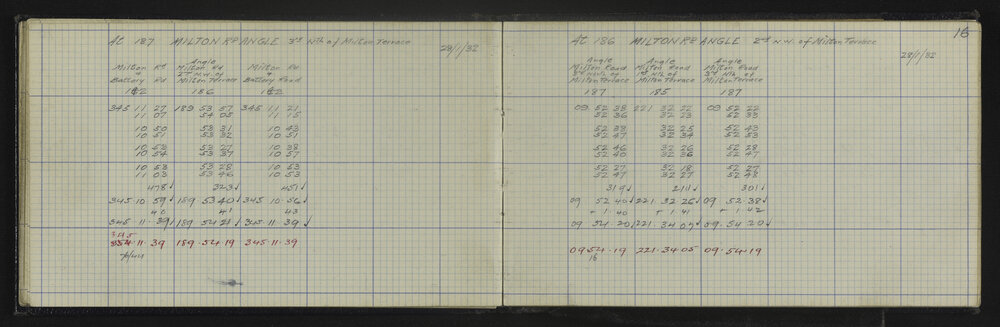 At 187 MILTON RD ANGLE 3rd Nth of Milton Terrace
29/1/32
Angle
Milton Rd Milton Rd Milton Rd
& 2nd N.W. of &
Battery Rd Milton Terrace Battery Road
1¢2 186 1¢2
345 11 27 189 53 57 345 11 21
11 07 54 05 11 15
10 50 53 31 10 43
10 51 53 32 10 51
10 53 53 27 10 38
10 54 53 37 10 57
10 53 53 28 10 53
11 03 53 46 10 53
478 323 451
345 10 59 189 53 40 345 10 56
40 41 43
345 11 39 189 54 21 345 11 39
345
354.11.39 189.54.19 345.11.39
16
At 186 MILTON RD ANGLE 2nd N.W. of Milton Terrace
29/1/32
Angle Angle Angle
Milton Road Milton Road Milton Road
3rd Nth of 1st Nth of 3rd Nth of
Milton Terrace Milton Terrace Milton Terrace
187 185 187
09 52 38 221 32 22 09 52 22
52 36 32 23 52 33
52 33 32 25 52 43
52 47 32 34 52 53
52 46 32 26 52 28
52 40 32 36 52 47
52 27 32 18 52 27
52 47 32 27 52 48
319 211 301
09 52 40 221 32 26 09 52 38
+ 1.40 + 1.41 + 1.42
09 54 20 221 34 07 09 54 20
09 54.19 221.34 05 09.54.19
16